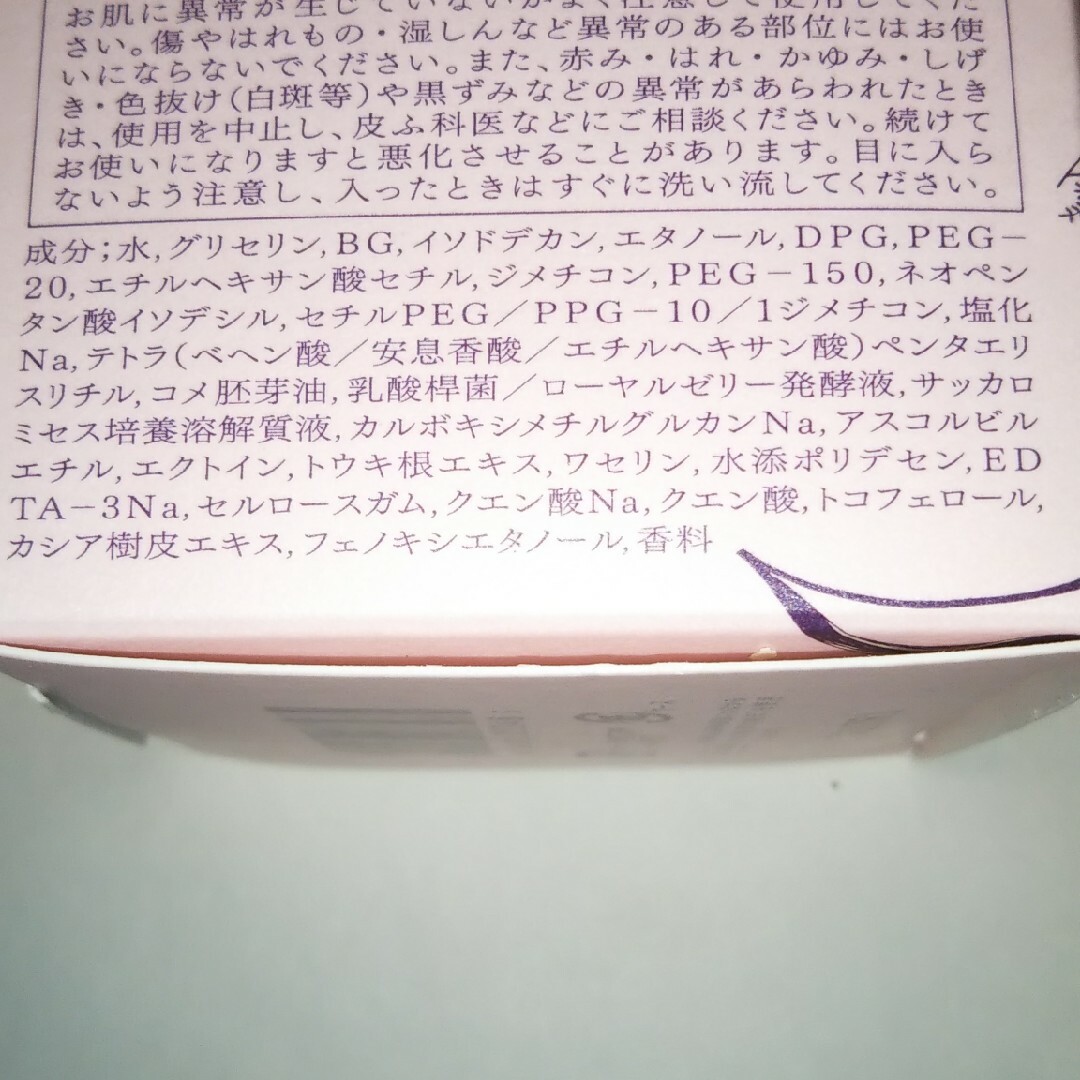 お肌に異常が生じていないかよく注意して使用してくだ
さい。傷やはれもの・湿しんなど異常のある部位にはお使
いにならないでください。また、赤み・はれ・かゆみ・しげ
き・色抜け(白斑等)や黒ずみなどの異常があらわれたとき
は、使用を中止し、皮ふ科医などにご相談ください。続けて
お使いになりますと悪化させることがあります。目に入ら
ないよう注意し、入ったときはすぐに洗い流してください。
成分;水,グリセリン,BG,イソドデカン,エタノール,DPG,PEG-
20,エチルヘキサン酸セチル,ジメチコン,PEG-150,ネオペン
タン酸イソデシル,セチルPEG/PPG-10/1ジメチコン,塩化
Na,テトラ(ベヘン酸/安息香酸/エチルヘキサン酸)ペンタエリ
スリチル,コメ胚芽油,乳酸桿菌/ローヤルゼリー発酵液,サッカロ
ミセス培養溶解質液,カルボキシメチルグルカンNa,アスコルビル
エチル,エクトイン,トウキ根エキス,ワセリン,水添ポリデセン,ED
TA-3Na,セルロースガム,クエン酸Na,クエン酸,トコフェロール,
カシア樹皮エキス,フェノキシエタノール,香料